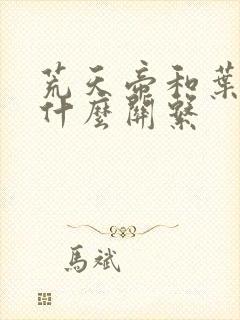 荒天帝和葉
什麼關繫
馬斌